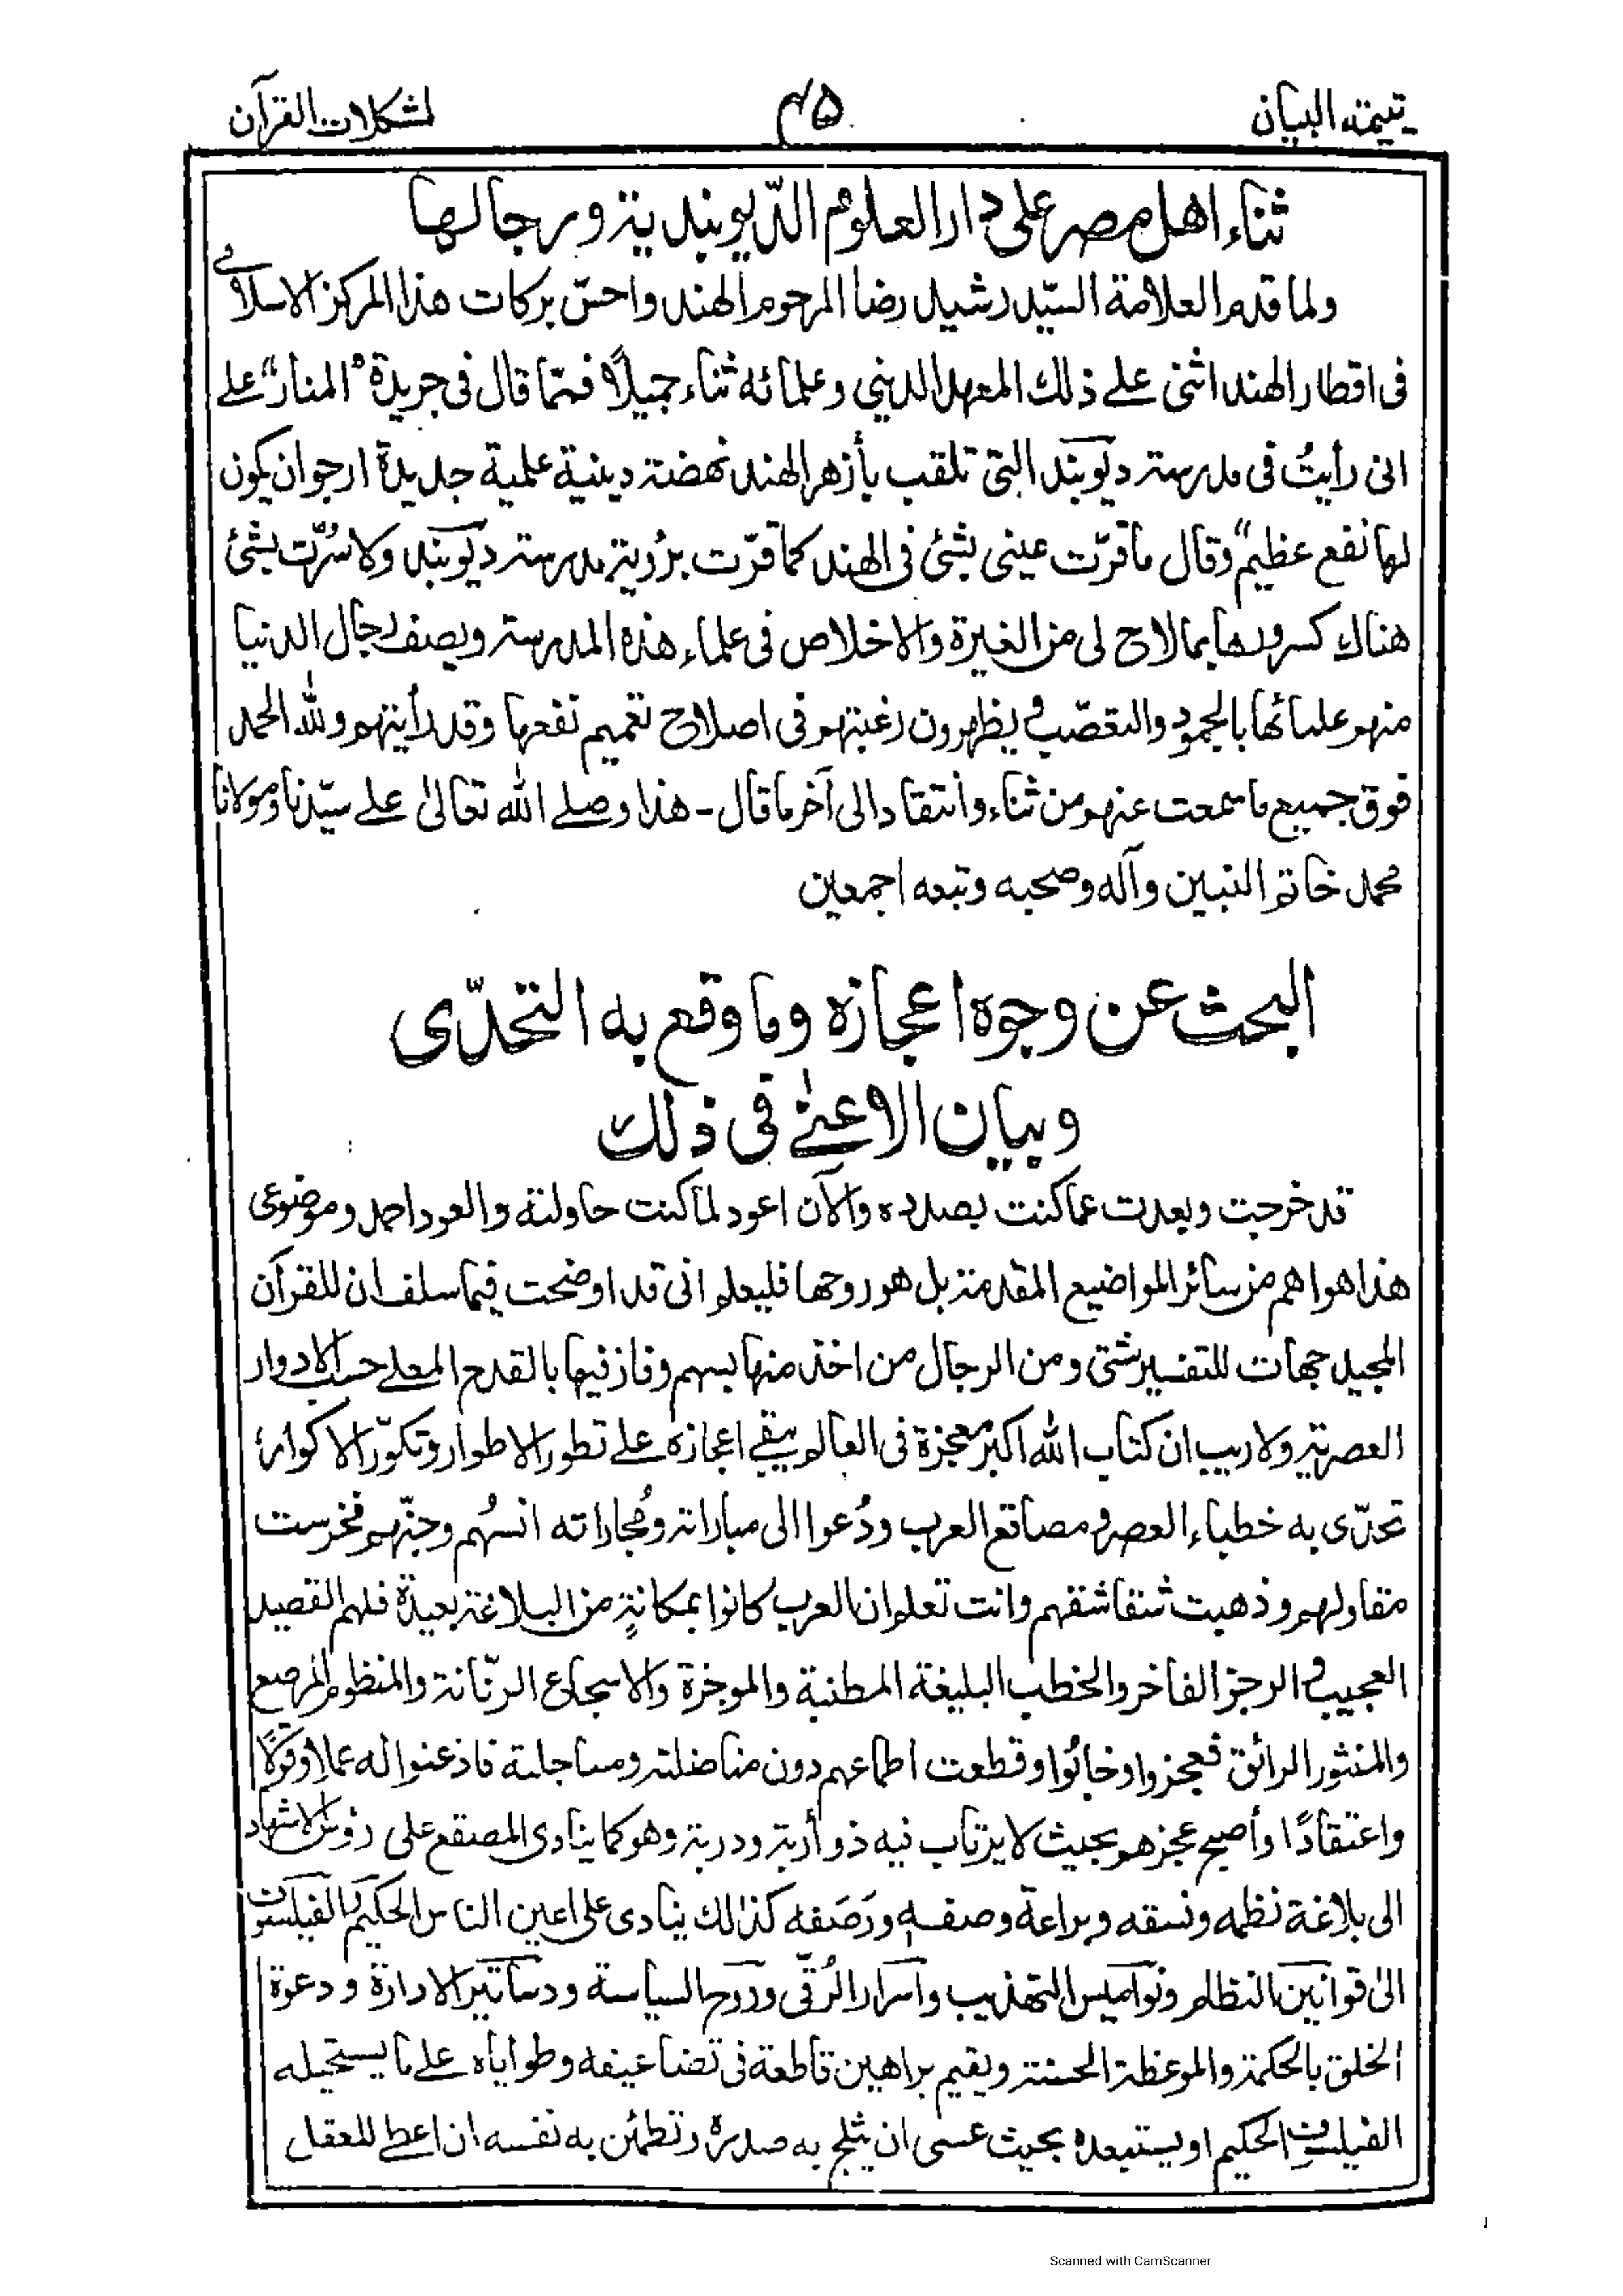 يتيمة البيان ٤٥ لمشكلات القرآن
ثناء اهل مصر على دار العلوم الدّيوبندية ورجالها
ولما قدم العلامة السيّد رشيد رضا المرحوم الهند واحسّ بركات هذا المركز الاسلامي
فى اقطار الهند اثنى على ذلك المعهد الديني وعلمائه ثناء جميلاً فممّا قال فى جريدة "المنار" على
انى رأيتُ فى مدرسة ديوبند التى تلقب بأزهر الهند نهضة دينية علمية جديدة ارجو ان يكون
لها نفع عظيم" وقال ما قرّت عينى بشئ فى الهند كما قرّت برؤية مدرسة ديوبند ولا سُرّت بشئ
هناك كسرورها بما لاح لى من الغيرة والاخلاص فى علماء هذه المدرسة ويصف رجال الدنيا
منهم علمائها بالجمود والتعصّب ويظهرون رغبتهم فى اصلاح تعميم نفعها وقد رأيتهم ولله الحمد
فوق جميع ما سمعت عنهم من ثناء وانتقاد الى آخر ما قال - هذا وصلى الله تعالىٰ على سيّدنا ومولانا
محمد خاتم النبين وآله وصحبه وتبعه اجمعين
البحث عن وجوه اعجازه وما وقع به التحدّى
وبيان الاعنى فى ذلك
قد خرجت وبعدت عما كنت بصدده والآن اعود لما كنت حاولته والعود احمد وموضوعى
هذا هو اهم من سائر المواضيع المقدمة بل هو روحها فليعلم انى قد اوضحت فيما سلف ان للقرآن
المجيد جهات للتفسير شتى ومن الرجال من اخذ منها بسهم وفاز فيها بالقدح المعلى حسب الادوار
العصرية ولا ريب ان كتاب الله اكبر معجزة فى العالم يبقى اعجازه على تطور الاطوار وتكوّر الاكوار
تحدّى به خطباء العصر ومصاقع العرب ودُعوا الى مباراته ومُجاراته انسُهم وجنّهم فخرست
مقاولهم وذهبت شقاشقهم وانت تعلم ان العرب كانوا بمكانةٍ من البلاغة بعيدة فلهم القصيد
العجيب والرجز الفاخر والخطب البليغة المطنبة والموجزة والاسجاع الرنّانة والمنظوم المرصع
والمنثور الرائق فعجزوا وخابُوا وقطعت اطماعهم دون مناضلته ومساجلته فاذعنوا له عملا وقولًا
واعتقادًا وأصبح عجزهم بحيث لا يرتاب فيه ذو أربة ودربة وهو كما ينادى المصقع على رؤس الاشهاد
الى بلاغة نظمه ونسقه وبراعة وصفه ورَصَفه كذلك ينادى على اعين الناس الحكيم الفيلسوف
الى قوانين النظام ونواميس التهذيب واسرار الرُقّى وروح السياسة ودساتير الادارة ودعوة
الخلق بالحكمة والموعظة الحسنة ويقيم براهين قاطعة فى تضاعيفه وطواياه على ما يستحيله
الفيلسوف الحكيم او يستبعده بحيث عسى ان يثلج به صدره وتطمئن به نفسه ان اعطى للعقل
Scanned with CamScanner